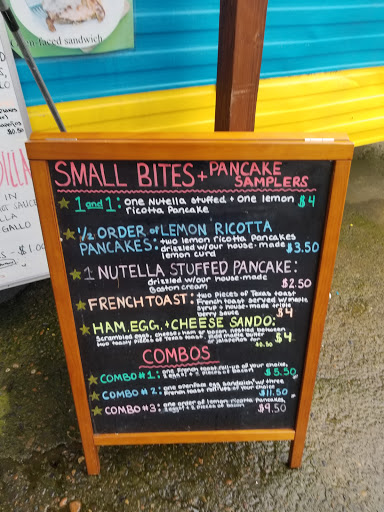 en-faced sandwich
SMALL BITES + PANCAKE SAMPLERS
1 and 1: one Nutella stuffed + one lemon $4
ricotta Pancake
1/2 ORDER OF LEMON RICOTTA
PANCAKES: two lemon ricotta pancakes
drizzled w/our house-made $3.50
lemon curd
1 NUTELLA STUFFED PANCAKE:
drizzled w/our house-made $2.50
Boston cream
FRENCH TOAST: two pieces of Texas toast
French toast served w/maple
syrup + house-made triple
berry sauce $4
HAM, EGG, + CHEESE SANDO:
Scrambled eggs, cheese + ham or bacon nestled between
two toasty pieces of Texas toast. $4
or jalapeños for
$0.50
COMBOS
COMBO #1: one french toast roll-up of your choice, $5.50
2 pieces of bacon
COMBO #2: one openface egg sandwich w/ three $11.50
french toast roll-ups of your choice
COMBO #3: one order of lemon ricotta pancakes, $9.50
2 pieces of bacon
DILLA
IN
SAUCE
LLA
GALLO
$0.50